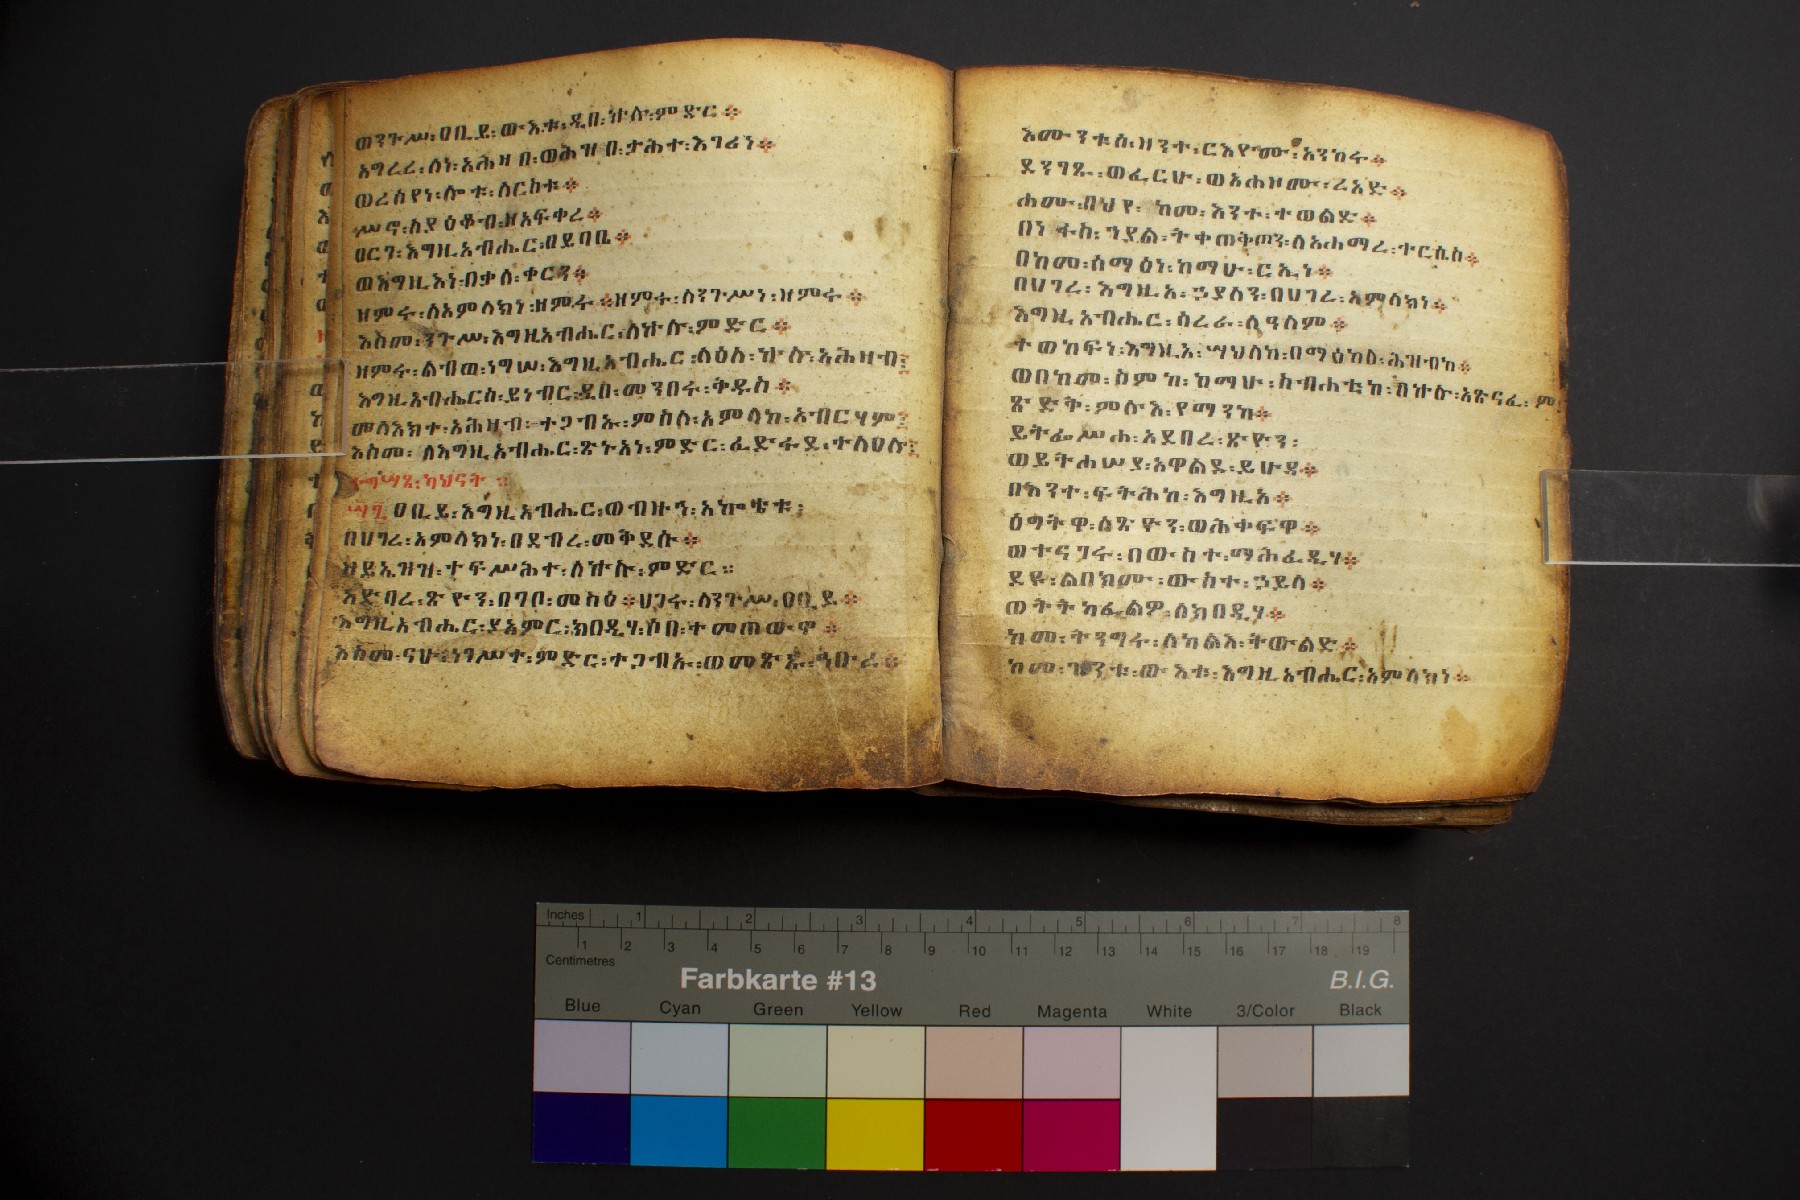 ወንጉሥ፡ዐቢይ፡ውእቱ፡ዲበ፡ኵሉ፡ምድር፨
አግረረ፡ለነ፡አሕዛበ፡ወሕዝበ፡ታሕተ፡እገሪነ፨
ወረሰየነ፡ሎቱ፡ለርስቱ፨
ሥኖ፡ለያዕቆብ፡ዘአፍቀረ፨
ዐርገ፡እግዚአብሔር፡በይባቤ፨
ወእግዚእነ፡በቃለ፡ቀርን፨
ዘምሩ፡ለአምላክነ፡ዘምሩ፨ዘምሩ፡ለንጉሥነ፡ዘምሩ፨
እስመ፡ንጉሥ፡እግዚአብሔር፡ለኵሉ፡ምድር፨
ዘምሩ፡ልብወ፡ነግሠ፡እግዚአብሔር፡ላዕለ፡ኵሉ፡አሕዛብ፤
እግዚአብሔርሰ፡ይነብር፡ዲበ፡መንበሩ፡ቅዱስ፨
መላእክተ፡አሕዛብ፡ተጋብኡ፡ምስለ፡አምላከ፡አብርሃም፤
እስመ፡ለእግዚአብሔር፡ጽኑአነ፡ምድር፡ፈድፋደ፡ተለዐሉ፤
ካህናት፡፡
ዐቢይ፡እግዚአብሔር፡ወብዙኅ፡አኰቴቱ፤
በሀገረ፡አምላክነ፡በደብረ፡መቅደሱ፨
ዘይኤዝዝ፡ተፍሥሕተ፡ለኵሉ፡ምድር።
አድባረ፡ጽዮን፡በገቦ፡መስዕ፨ሀገሩ፡ለንጉሥ፡ዐቢይ፨
እግዚአብሔር፡ያአምር፡ክበዲሃ፡ሶበ፡ተመጠውኖ፨
እስመ፡ናሁ፡ነገሥተ፡ምድር፡ተጋብኡ፡ወመጽኡ፡ኅቡረ፨
እሙንቱሰ፡ዘንተ፡ርእዮሙ፡አንከሩ፨
ደንገፁ፡ወፈርሁ፡ወአሐዞሙ፡ረአድ፨
ሐሙ፡በህየ፡ከመ፡እንተ፡ተወልድ፨
በነፋስ፡ኀያል፡ትቀጠቅጦን፡ለአሕማረ፡ተርሴስ፨
በከመ፡ሰማዕነ፡ከማሁ፡ርኢነ፨
በሀገረ፡እግዚአ፡ኃያላን፡በሀገረ፡አምላክነ፨
እግዚአብሔር፡ሳረራ፡ለዓለም፨
ተወከፍነ፡እግዚአ፡ሣህለከ፡በማዕከለ፡ሕዝብከ፨
ወበከመ፡ስምከ፡ከማሁ፡ስብሐቲከ፡በኵሉ፡አጽናፈ፡ም
ጽድቅ፡ምሉእ፡የማንከ፨
ይትፌሥሐ፡አደበረ፡ጽዮን፡
ወይትሐሠያ፡አዋልደ፡ይሁዳ፨
በእንተ፡ፍትሕከ፡እግዚአ፨
ዕግትዋ፡ለጽዮን፡ወሕቀፍዋ፨
ወተናገሩ፡በውስተ፡ማሕፈዲሃ፨
ደዩ፡ልበክሙ፡ውስተ፡ኃይላ፨
ወትትካፈልዎ፡ለክበዲሃ፨
ከመ፡ትንግሩ፡ለካልእ፡ትውልድ፨
ከመ፡ዝንቱ፡ውእቱ፡እግዚአብሔር፡አምላክነ፨
Inches 1 2 3 4 5 6 7 8
1 2 3 4 5 6 7 8 9 10 11 12 13 14 15 16 17 18 19
Centimetres
Farbkarte #13 B.I.G.
Blue Cyan Green Yellow Red Magenta White 3/Color Black